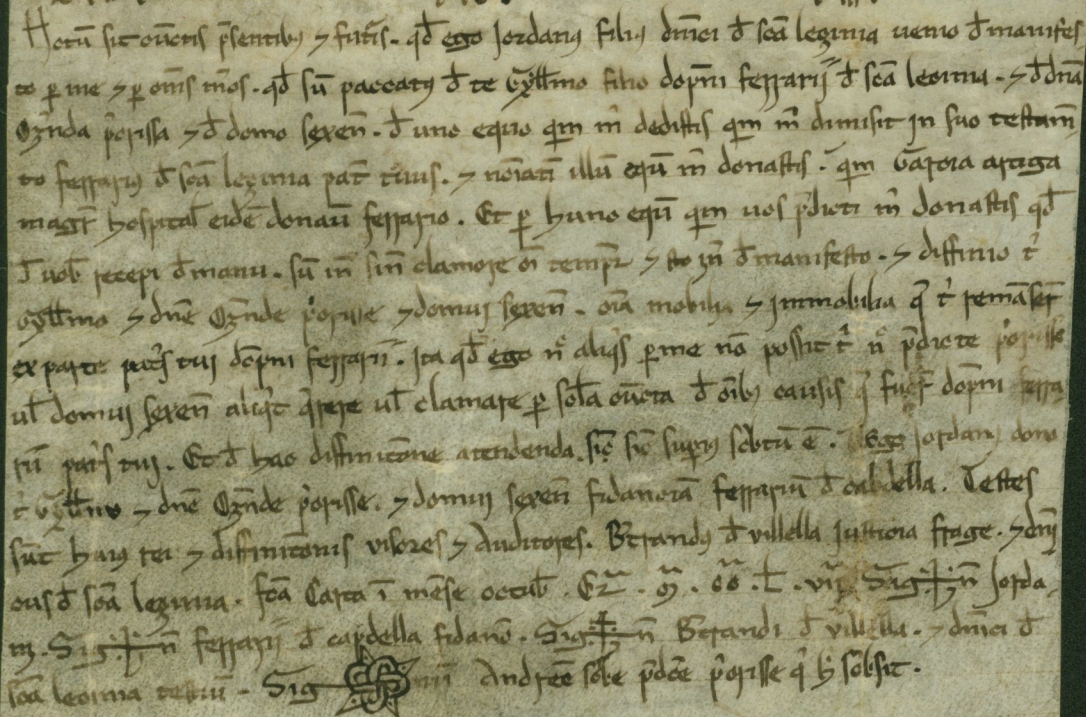 Notū sit cūctis p̄sentib⁊ ⁊ futis. qd ego Jordanus filius dm̄ici d̄ scā lezinia uenio d̄ manifes
to p me ⁊ p om̄s m̄os. qd sū paccatus d̄ te Guyll̄mo filio dop̄ni ferrarii d̄ scā lecinia. ⁊ d̄ dn̄a
Oz̄nda p̄orissa ⁊ d̄ domo sexen̄. d̄ uno equo qm̄ m̄ dedistis qm̄ m̄ dimisit in suo testam̄
to ferrarius d̄ scā lezinia pat̄ tuus. ⁊ noīati illū eqū m̄ donastis. qm̄ Garcia artiga
magr̄ hospital̄ eidē donau̅ ferrario. Et p hunc eqū qm̄ uos p̄dicti m̄ donastis qd
d̄ uob̄ recepi d̄ manu. sū in̄ sin̄ clamore oī tempr̄ ⁊ sto in̄ d̄ manifesto. ⁊ diffinio t̄
Guyll̄mo ⁊ dn̄e Oz̄nde p̄orisse ⁊ domui sexen̄. oīa mobilia ⁊ immobilia q̄ t̄ remāser̄
ex parte pat̄s tui dop̄ni ferrarii. Ita qd ego n̄ aliq̄s p me nō possit t̄ n̄ p̄dicte p̄orisse
ul̄ domui sexen̄ aliq̄t q̄rere ul̄ clamare p sol̄a cūcta d̄ oīb⁊ causis q̄ fuer̄ dop̄ni ferra
rii pat̄s tui. Et d̄ hac diffinicōne atendenda sic̄ sic̄ superius scbtū ē. Ego Jordanus dono
t̄ Guyll̄mo ⁊ dn̄e Oz̄nde p̄orisse. ⁊ domui sexen̄ fidanciā ferrariū d̄ capdella. Testes
sūt huius rei ⁊ diffinicōnis uisores ⁊ auditores. Btrandus d̄ uillella Justicia frage. ⁊ dm̄i
cus d̄ scā lezinia. fcā Carta ī mēse octub̄. Er̄. M̄. CC. L. VII. Sig✝n̄ Jorda
ni. Sig✝n̄ ferrarii d̄ capdella fidanc̄. Sig✝n̄ Btrandi d̄ uillella. ⁊ dm̄ici d̄
scā lecinia testiū. Sig nū Andree scb̄e p̄dc̄e p̄orisse q̄ h̄ scbsit.